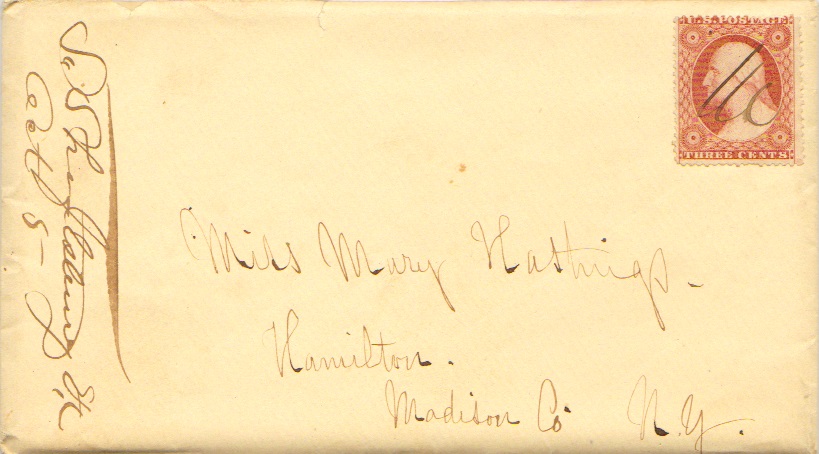 U.S. POSTAGE
THREE CENTS
Miss Mary Hastings.
Hamilton.
Madison Co N.Y.
Oct 5